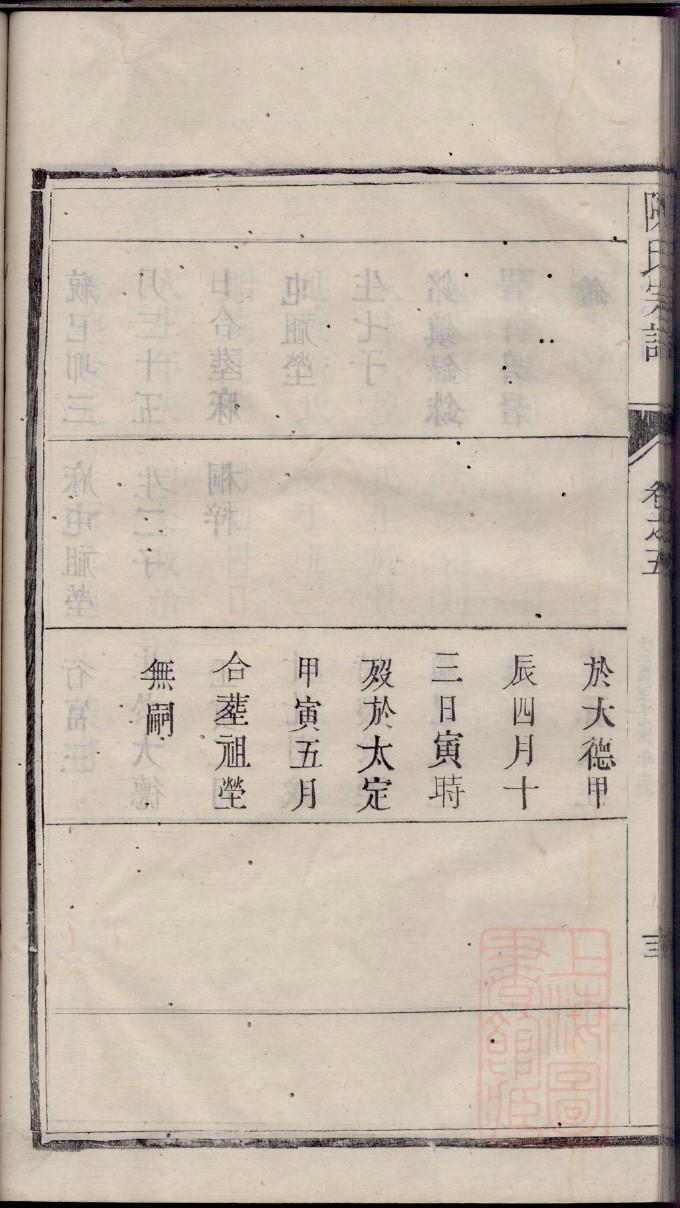 陳氏宗譜
卷之五
三
於大德甲
辰四月十
三日寅時
歿於太定
甲寅五月
合塟祖塋
無嗣
上海圖
書館藏